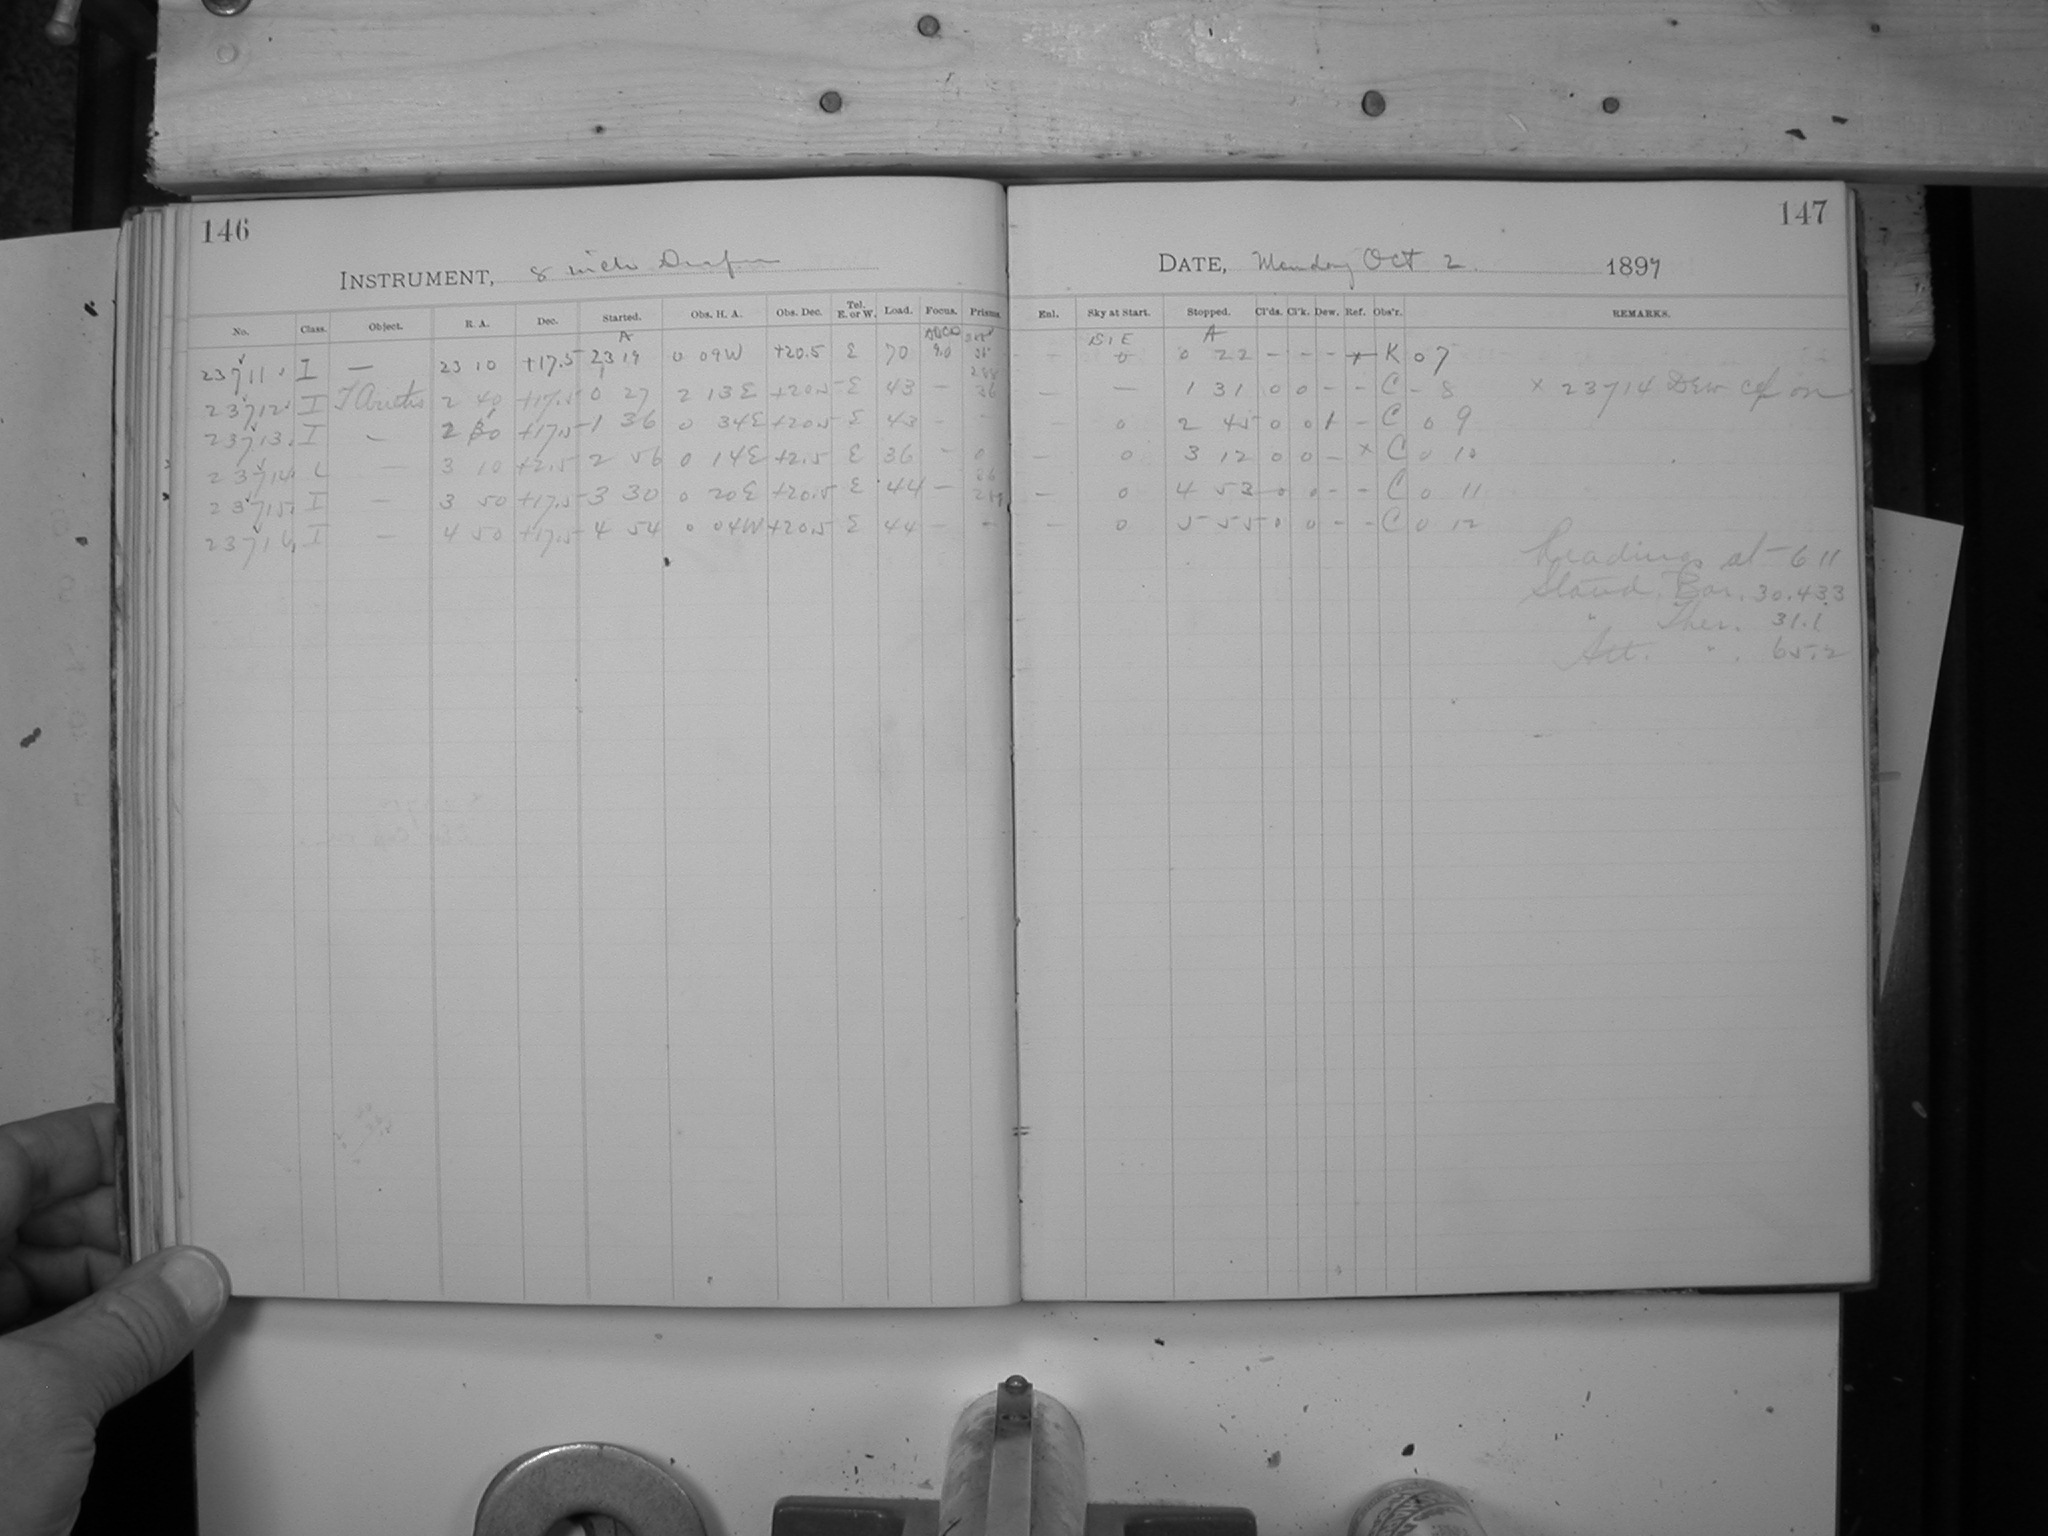 146
147
INSTRUMENT, 8 inch Draper
DATE, Monday Oct 2 1897
No. Class. Object. R. A. Dec. Started. Obs. H. A. Obs. Dec. Tel. E. or W. Load. Focus. Prisms. Enl. Sky at Start. Stopped. Cl'ds. Cl'k. Dew. Ref. Obs'r. REMARKS.
A S1E A
23711 I — 23 10 +17.5 23 19 0 09W +20.5 E 70 9.0 - 0 0 22 - - - K 07
23712 I T Arietis 2 40 +17.5 0 27 2 13E +20.5 E 43 - 36 — — 1 31 0 0 - - C - 8 x 23714 Dew cap on
23713 I - +17.5 1 36 0 34E +20.5 E 43 - - 0 2 45 0 0 1 - C 0 9
23714 L — 3 10 +2.5 2 56 0 14E +2.5 E 36 - 0 — 0 3 12 0 0 - x C 0 10
23715 I — 3 50 +17.5 3 30 0 20E +20.5 E 44 - — 0 4 53 0 0 - - C 0 11
23716 I — 4 50 +17.5 4 54 0 04W +20.5 E 44 - - - 0 5 55 0 0 - - C 0 12
Readings at 6 11
Stand. Bar. 30.433
" Ther. 31.1
Att. " . 65.2